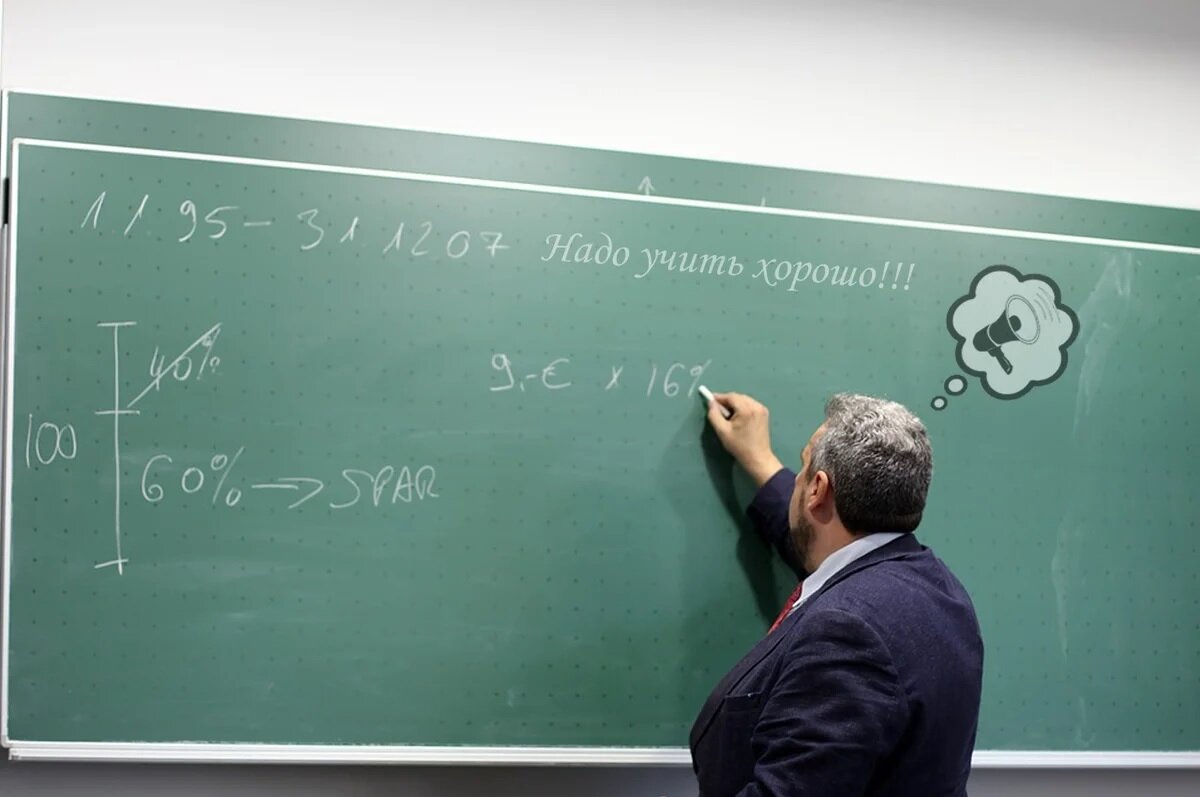 1.1.95 – 31.1207
Надо учить хорошо!!!
40%
9,-€ x 16%
100
60% → SPAR